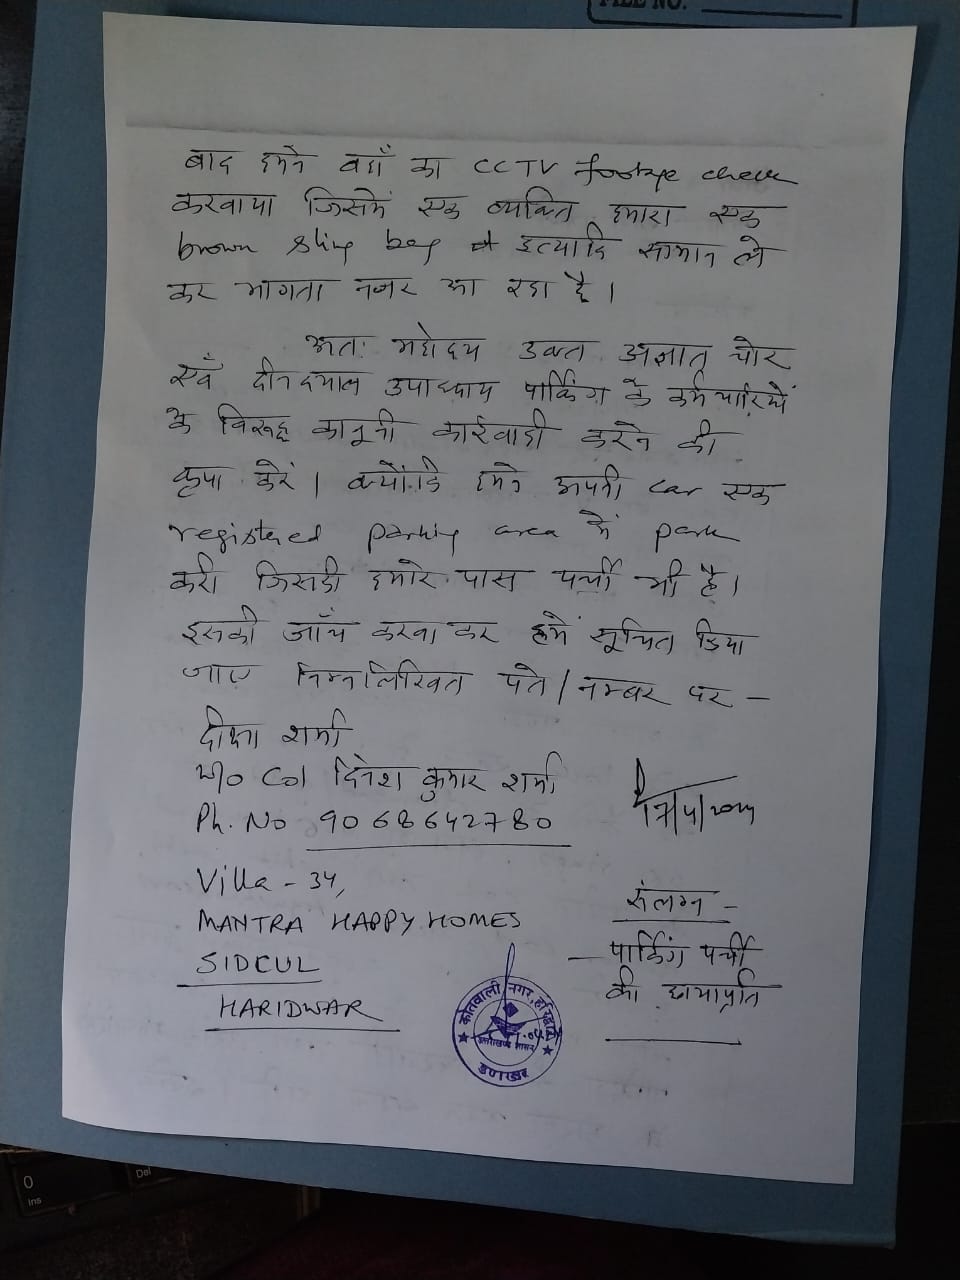 FILE NO.
बाद हमने वहाँ का CCTV footage check
करवाया जिसमें एक व्यक्ति हमारा एक
brown sling bag इत्यादि सामान ले
कर भागता नजर आ रहा है।
अतः महोदय उक्त अज्ञात चोर
एवं दीनदयाल उपाध्याय पार्किंग के कर्मचारियों
के विरूद्ध कानूनी कार्रवाही करने की
कृपा करें। क्योंकि हमने अपनी car एक
registered parking area में park
करी जिसकी हमारे पास पर्ची भी है।
इसकी जाँच करवा कर हमें सूचित किया
जाए निम्नलिखित पते/नम्बर पर –
दीक्षा शर्मा
w/o Col दिनेश कुमार शर्मा
Ph. No 9068642780
17/4/2024
Villa - 34,
MANTRA HAPPY HOMES
SIDCUL
HARIDWAR
संलग्न –
– पार्किंग पर्ची
की छायाप्रति
कोतवाली नगर, हरिद्वार
उत्तराखण्ड शासन
0
Ins
Del